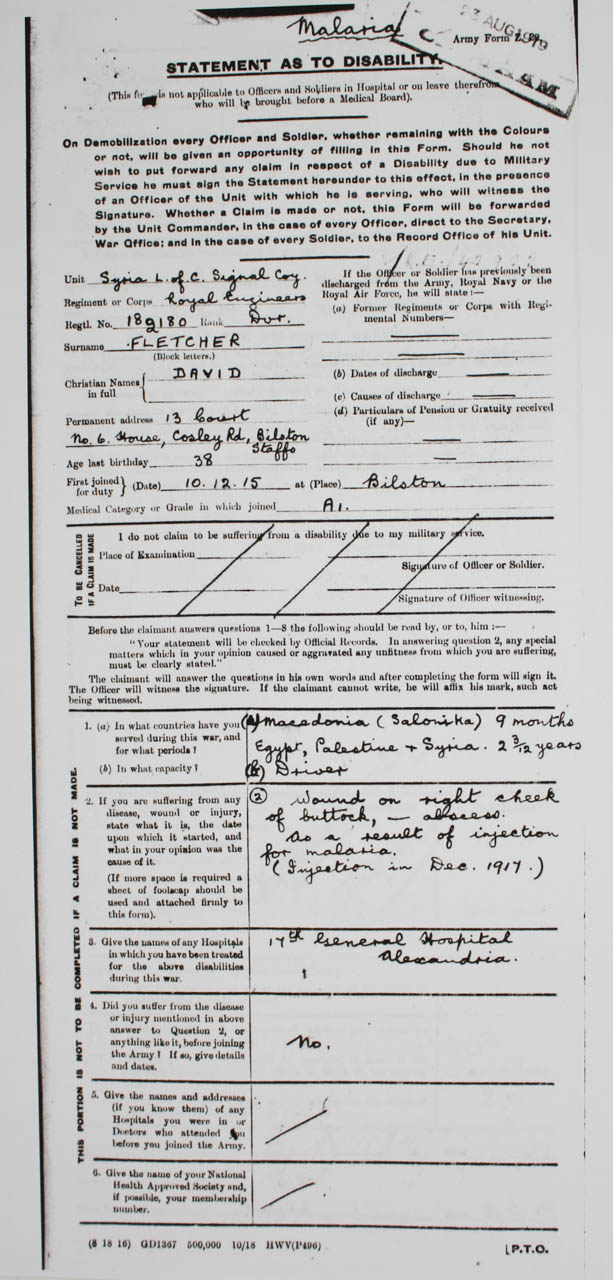 Malaria
23 AUG 1919
Army Form Z. 22.
STATEMENT AS TO DISABILITY.
(This form is not applicable to Officers and Soldiers in Hospital or on leave therefrom
who will be brought before a Medical Board).
On Demobilization every Officer and Soldier, whether remaining with the Colours
or not, will be given an opportunity of filling in this Form. Should he not
wish to put forward any claim in respect of a Disability due to Military
Service he must sign the Statement hereunder to this effect, in the presence
of an Officer of the Unit with which he is serving, who will witness the
Signature. Whether a Claim is made or not, this Form will be forwarded
by the Unit Commander, in the case of every Officer, direct to the Secretary,
War Office; and in the case of every Soldier, to the Record Office of his Unit.
Unit Syria L. of C. Signal Coy.
Regiment or Corps Royal Engineers
Regtl. No. 189180 Rank Dvr.
Surname FLETCHER
(Block letters.)
Christian Names in full DAVID
Permanent address 13 Court
No. 6. House, Cosley Rd, Bilston
Staffs
Age last birthday 38
If the Officer or Soldier has previously been
discharged from the Army, Royal Navy or the
Royal Air Force, he will state :—
(a) Former Regiments or Corps with Regi-
mental Numbers—
(b) Dates of discharge
(c) Causes of discharge
(d) Particulars of Pension or Gratuity received
(if any)—
First joined for duty } (Date) 10.12.15 at (Place) Bilston
Medical Category or Grade in which joined A1.
TO BE CANCELLED
IF A CLAIM IS MADE
I do not claim to be suffering from a disability due to my military service.
Place of Examination
Signature of Officer or Soldier.
Date
Signature of Officer witnessing.
Before the claimant answers questions 1—8 the following should be read by, or to, him :—
"Your statement will be checked by Official Records. In answering question 2, any special
matters which in your opinion caused or aggravated any unfitness from which you are suffering,
must be clearly stated."
The claimant will answer the questions in his own words and after completing the form will sign it.
The Officer will witness the signature. If the claimant cannot write, he will affix his mark, such act
being witnessed.
THIS PORTION IS NOT TO BE COMPLETED IF A CLAIM IS NOT MADE.
1. (a) In what countries have you
served during this war, and
for what periods ?
(b) In what capacity ?
(a) Macedonia (Salonika) 9 months
Egypt, Palestine + Syria. 2 3/12 years
(b) Driver
2. If you are suffering from any
disease, wound or injury,
state what it is, the date
upon which it started, and
what in your opinion was the
cause of it.
(If more space is required a
sheet of foolscap should be
used and attached firmly to
this form).
(2) Wound on right cheek
of buttock, — abscess.
As a result of injection
for malaria.
(Injection in Dec. 1917.)
3. Give the names of any Hospitals
in which you have been treated
for the above disabilities
during this war.
17th General Hospital
Alexandria.
4. Did you suffer from the disease
or injury mentioned in above
answer to Question 2, or
anything like it, before joining
the Army ? If so, give details
and dates.
No.
5. Give the names and addresses
(if you know them) of any
Hospitals you were in or
Doctors who attended you
before you joined the Army.
6. Give the name of your National
Health Approved Society and,
if possible, your membership
number.
(8 18 16) GD1367 500,000 10/18 HWV(P496)
[P.T.O.